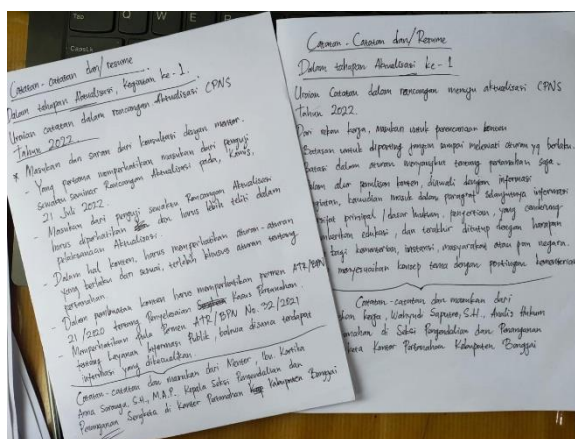 Tab
Q
W
E
CapsLk
Catatan-catatan dan/resume
Dalam tahapan Aktualisasi, Kegiatan ke-1.
Uraian Catatan dalam rancangan Aktualisasi CPNS
Tahun 2022.
* Masukan dan saran dari konsultasi dengan mentor.
- Yang pertama memperhatikan masukan dari penguji
sewaktu seminar Rancangan Aktualisasi pada, Kamis,
21 Juli 2022.
- Masukan dari penguji sewaktu Rancangan Aktualisasi
harus diperhatikan dan harus lebih teliti dalam
pelaksanaan Aktualisasi.
- Dalam hal konten, harus memperhatikan aturan-aturan
yang berlaku dan sesuai, terlebih khusus aturan tentang
pertanahan.
- Dalam pembuatan konten harus memperhatikan permen ATR/BPN
21/2020 tentang Penyelesaian Kasus Pertanahan.
- Memperhatikan pula Permen ATR/BPN No. 32/2021
tentang Layanan Informasi Publik, bahwa disana terdapat
informasi yang dikecualikan.
Catatan-catatan dan masukan dari Mentor, Ibu. Kartika
Anna S.H., M.A.P., Kepala Seksi Pengendalian dan
Penanganan Sengketa di Kantor Pertanahan Kabupaten Banggai
Catatan-Catatan dan/Resume
Dalam tahapan Aktualisasi ke-1
Uraian Catatan dalam rancangan menuju aktualisasi CPNS
Tahun 2022.
Dari rekan kerja, masukan untuk perencanaan konten
Batasan untuk diposting jangan sampai melewati aturan yg berlaku.
dalam aturan menyangkut tentang pertanahan saja.
dalam alur penulisan konten, diawali dengan informasi
kemudian masuk dalam paragraf selanjutnya informasi
prinsipal/dasar hukum, pengertian, yang cenderung
memberikan edukasi, dan terakhir ditutup dengan harapan
bagi kementerian, instansi, masyarakat atau pun negara.
menyesuaikan konsep tema dengan postingan kementerian
Catatan-catatan dan masukan dari
rekan kerja, Wahyudi Saputro, S.H., Analis Hukum
Pertanahan di Seksi Pengendalian dan Penanganan
Kantor Pertanahan Kabupaten Banggai